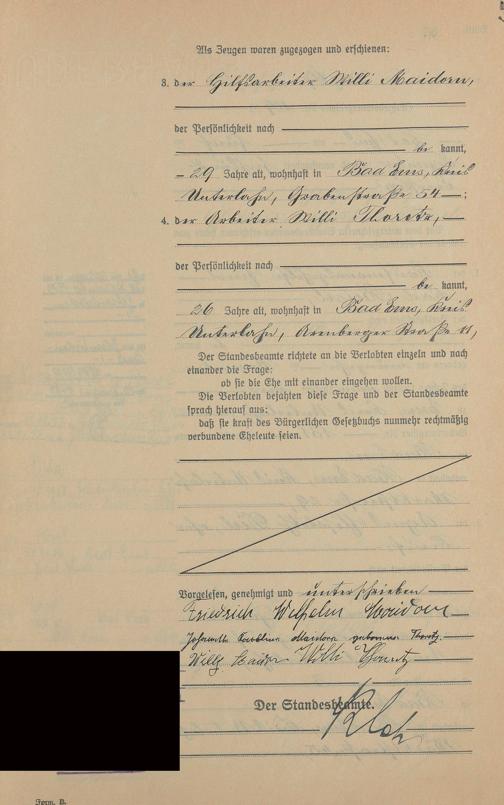 Als Zeugen waren zugezogen und erschienen:
3. der Hilfsarbeiter Willi Maidorn,
der Persönlichkeit nach
be kannt,
29 Jahre alt, wohnhaft in Bad Ems, Kreis
Unterlahn, Grabenstraße 54 ;
4. der Arbeiter Willi Thoretz,
der Persönlichkeit nach
be kannt,
26 Jahre alt, wohnhaft in Bad Ems, Kreis
Unterlahn, Arenberger Straße 11,
Der Standesbeamte richtete an die Verlobten einzeln und nach
einander die Frage:
ob sie die Ehe mit einander eingehen wollen.
Die Verlobten bejahten diese Frage und der Standesbeamte
sprach hierauf aus:
daß sie kraft des Bürgerlichen Gesetzbuchs nunmehr rechtmäßig
verbundene Eheleute seien.
Vorgelesen, genehmigt und unterschrieben
Friedrich Wilhelm Maidorn
Maidorn geborene
Willy Maidorn Willi
Der Standesbeamte.
Form. B.